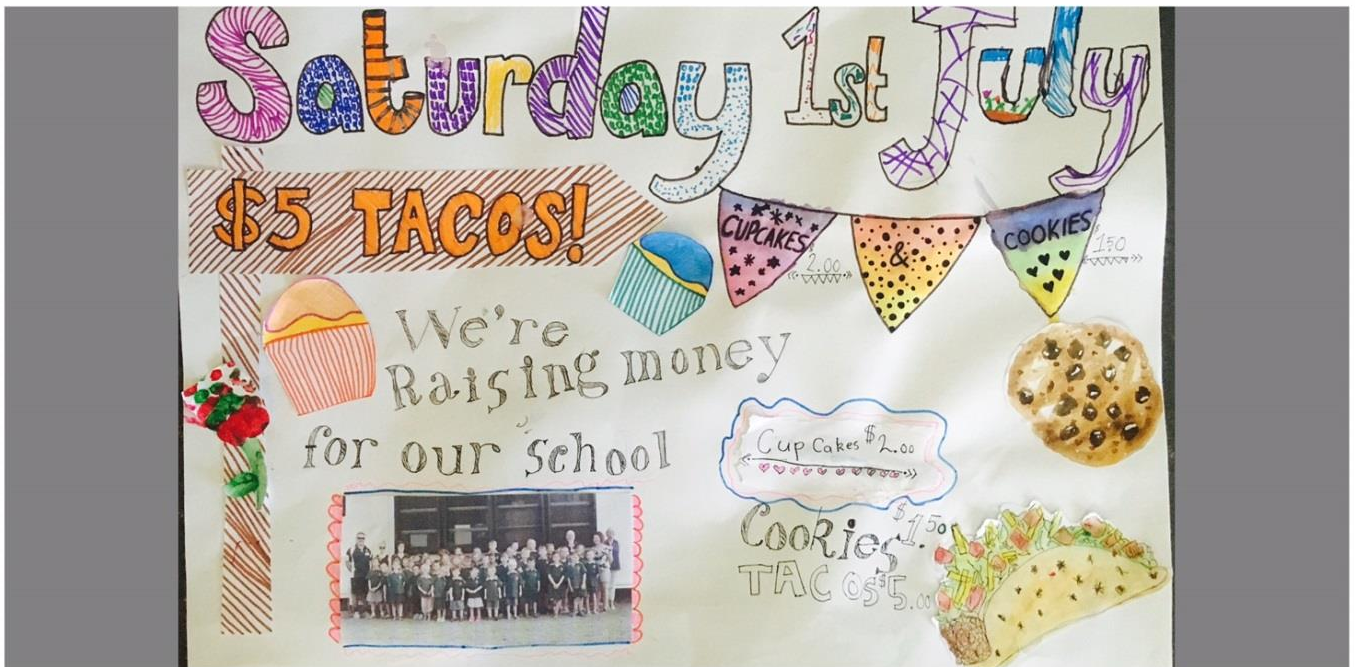 Saturday 1st July
$5 TACOS!
CUPCAKES & COOKIES
$2.00
$150
We're
Raising money
for our school
Cup Cakes $2.00
Cookies $1.50
TACOS $5.00